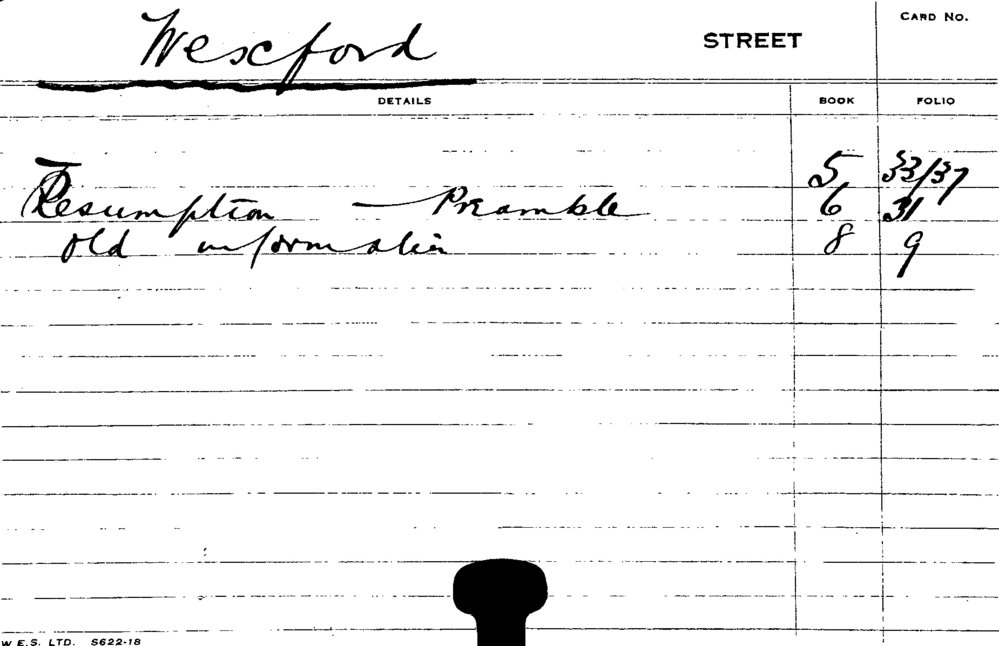 Wexford STREET CARD NO.
DETAILS BOOK FOLIO
5 33/37
Resumption — Preamble 6 31
Old information 8 9
W.E.S. LTD. S622-18